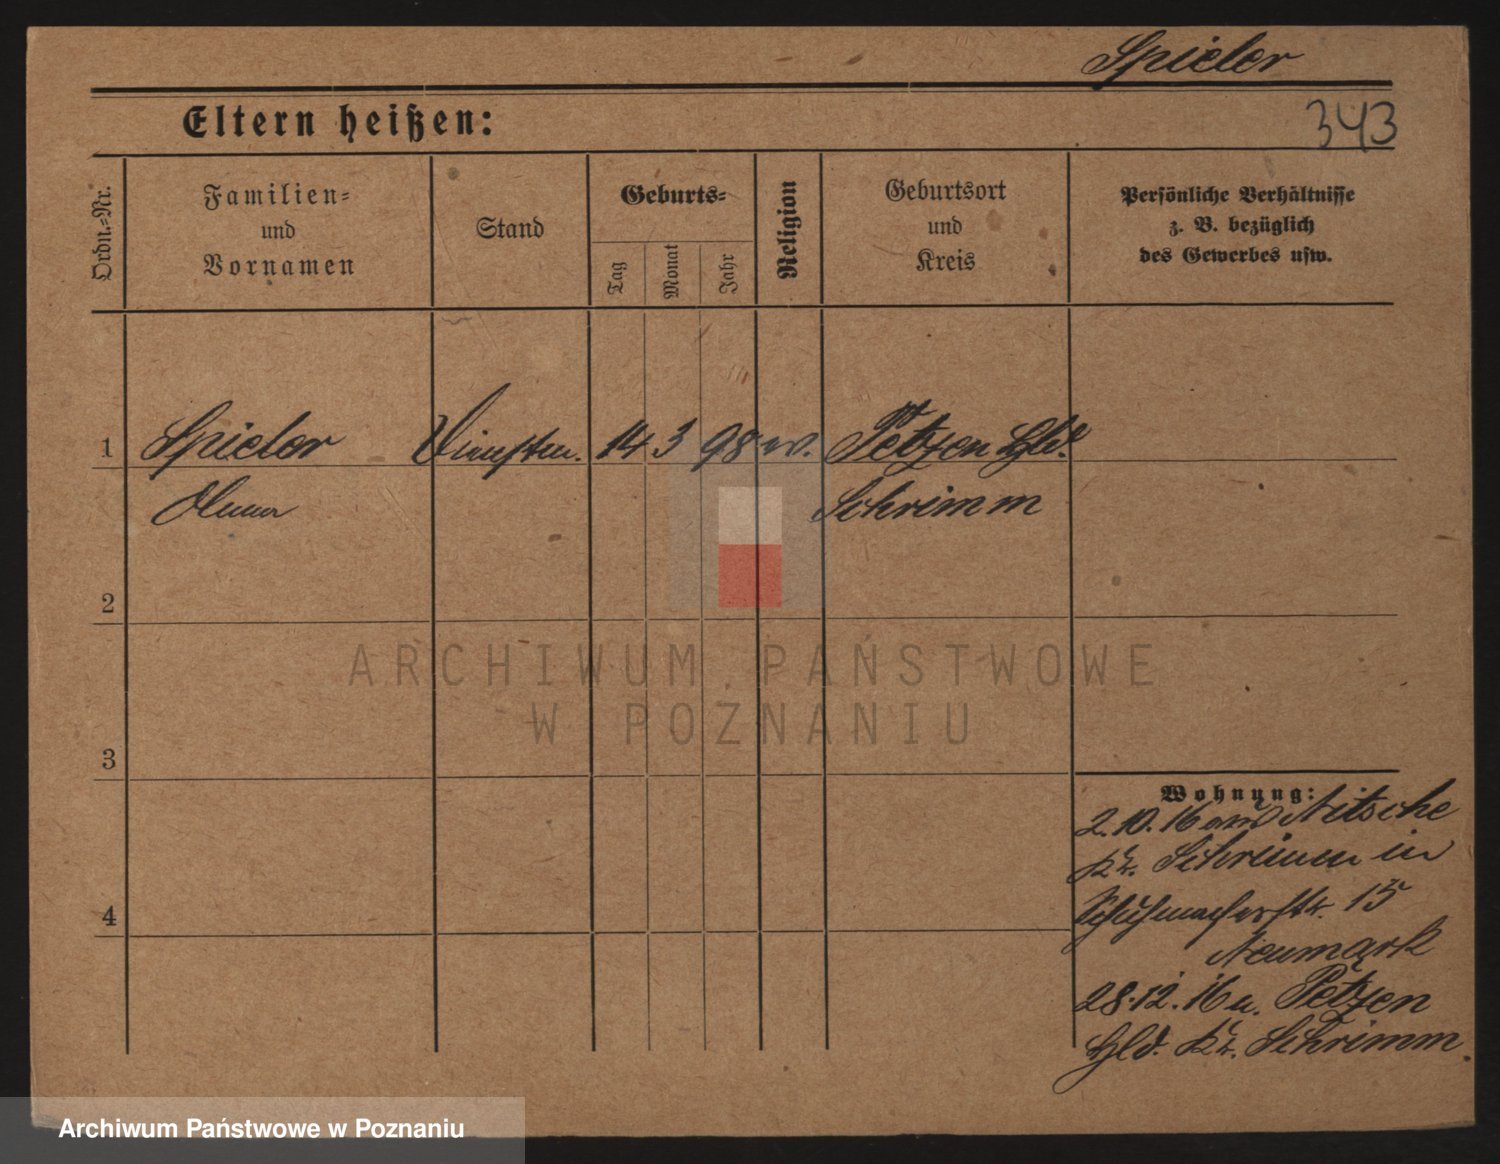 Spieler
343
Eltern heißen:
Ordn.-Nr.
Familien-
und
Vornamen
Stand
Geburts-
Tag
Monat
Jahr
Religion
Geburtsort
und
Kreis
Persönliche Verhältnisse
z. B. bezüglich
des Gewerbes usw.
1 Spieler 14 3 98 Petzen Hld.
Schrimm
2
3
4
Wohnung:
2.10.16 Nitsche
Kr. Schrimm in
Schuhmacherstr. 15
Neumark
28.12.16 n. Petzen
Hld. Kr. Schrimm.
ARCHIWUM PAŃSTWOWE
W POZNANIU
Archiwum Państwowe w Poznaniu